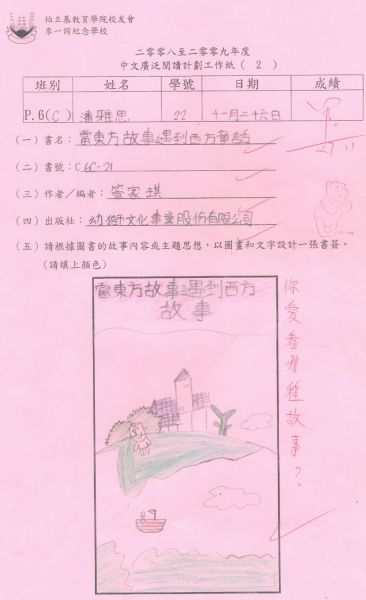 柏立基教育學院校友會
李一諤紀念學校
二零零八至二零零九年度
中文廣泛閱讀計劃工作紙（2）
班別 姓名 學號 日期 成績
P.6(C) 潘雅思 22 十一月二十六日
27.11
(一) 書名：當東方故事遇到西方童話
(二) 書號：C6C-21
(三) 作者／編者：管家琪
(四) 出版社：幼獅文化事業股份有限公司
(五) 請根據圖書的故事內容或主題思想，以圖畫和文字設計一張書簽。
(請填上顏色)
當東方故事遇到西方
故事
你愛看哪種故事？